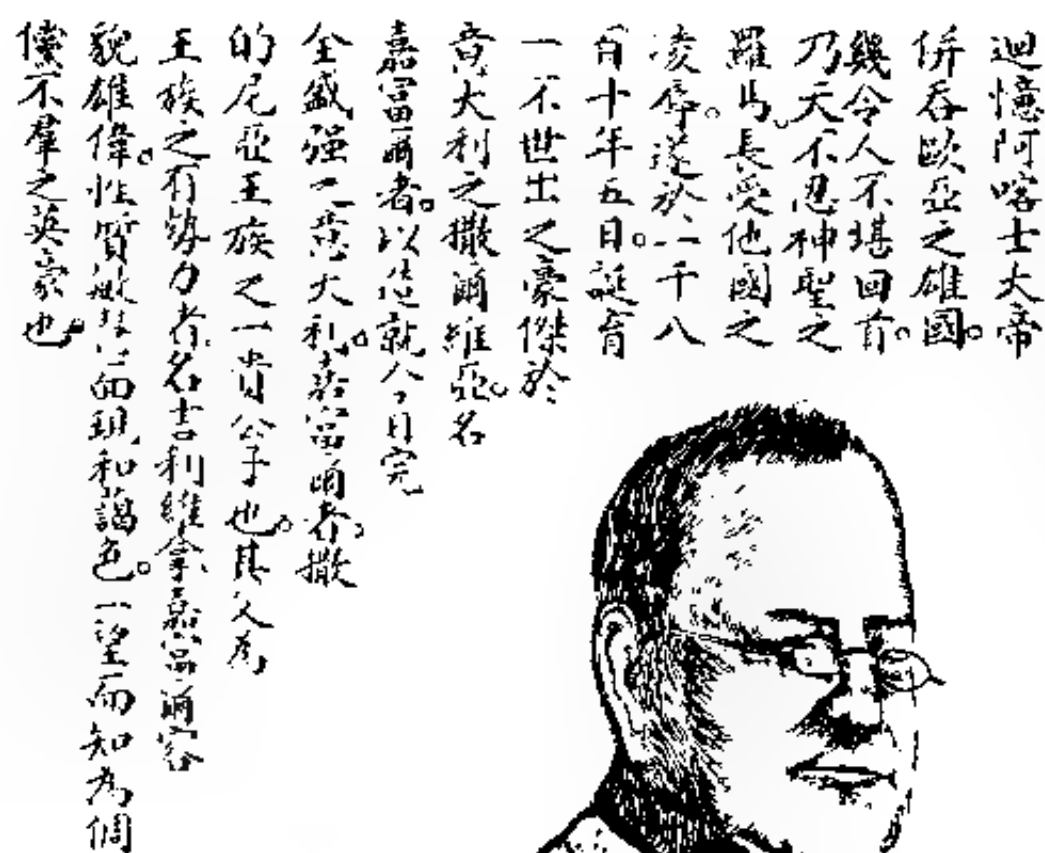 迴憶阿喀士大帝
併吞歐亞之雄國。
幾令人不堪回首。
乃天不忍神聖之
羅馬。長受他國之
凌辱。遂於一千八
百十年五日。誕育
一不世出之豪傑於
意大利之撒爾維亞。名
嘉富爾者。以造就今日完
全盛強之意大利。嘉富爾者。撒
的尼亞王族之一貴公子也。其父為
王族之有勢力者。名吉利維拿嘉富爾容
貌雄偉。性質敏捷。面現和藹色。一望而知為倜
儻不羣之英豪也。